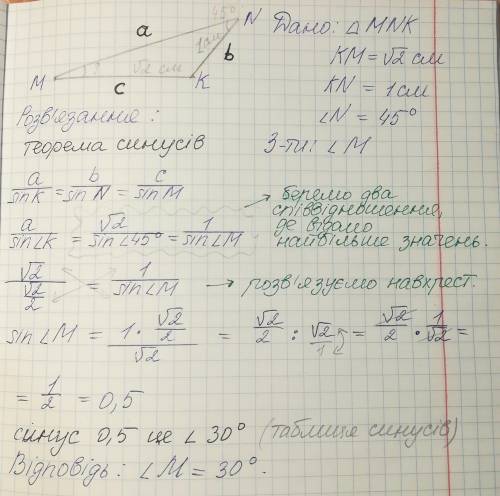 45°
N
a
1см
b
√2 см
M
c
K
Дано: △MNK
KM = √2 см
KN = 1 см
∠N = 45°
З-ти: ∠M
Розв'язання:
теорема синусів
a/sinK = b/sinN = c/sinM
→ беремо два
співвідношення,
де відомо
найбільше значень.
a/sin∠K = √2/sin∠45° = 1/sin∠M
√2/(√2/2) = 1/sin∠M → розв'язуємо навхрест.
sin∠M = (1 · √2/2)/√2 = √2/2 : √2/1 = √2/2 · 1/√2 =
= 1/2 = 0,5
синус 0,5 це ∠30° (таблиця синусів)
Відповідь: ∠M = 30°.